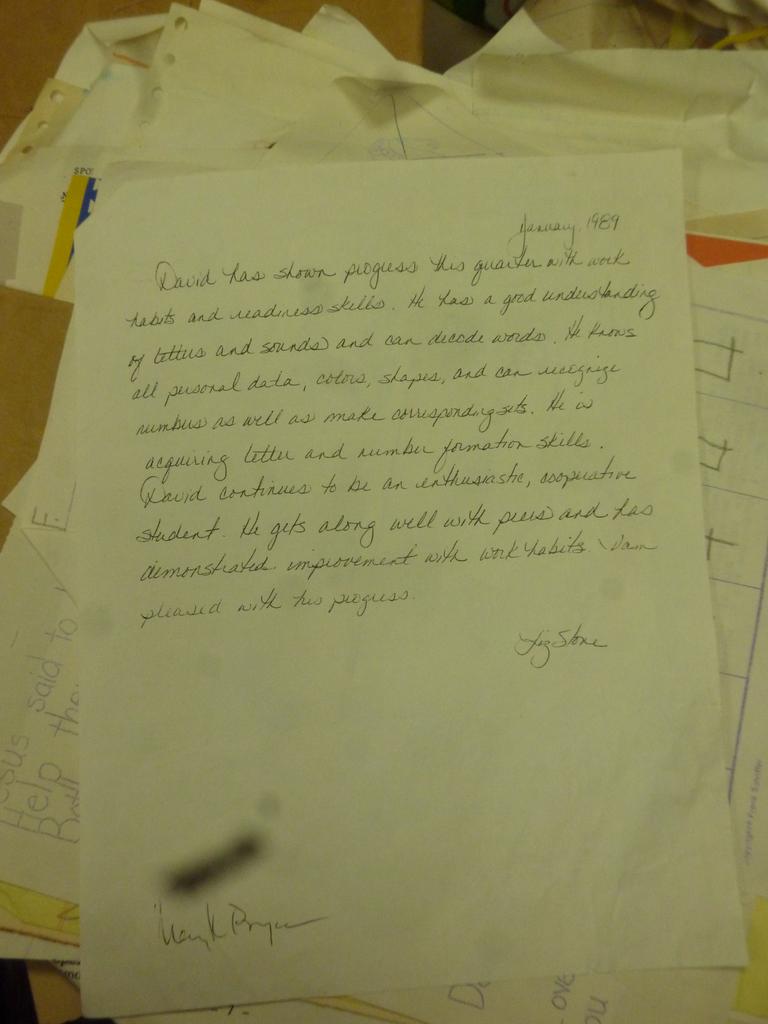 January, 1989
David has shown progress this quarter with work
habits and readiness skills. He has a good understanding
of letters and sounds and can decode words. He knows
all personal data, colors, shapes, and can recognize
numbers as well as make corresponding sets. He is
acquiring letter and number formation skills.
David continues to be an enthusiastic, cooperative
student. He gets along well with peers and has
demonstrated improvement with work habits. I am
pleased with his progress.
Liz Stone
SPO
E
said to
Help the
4
4
4
OVE
OU